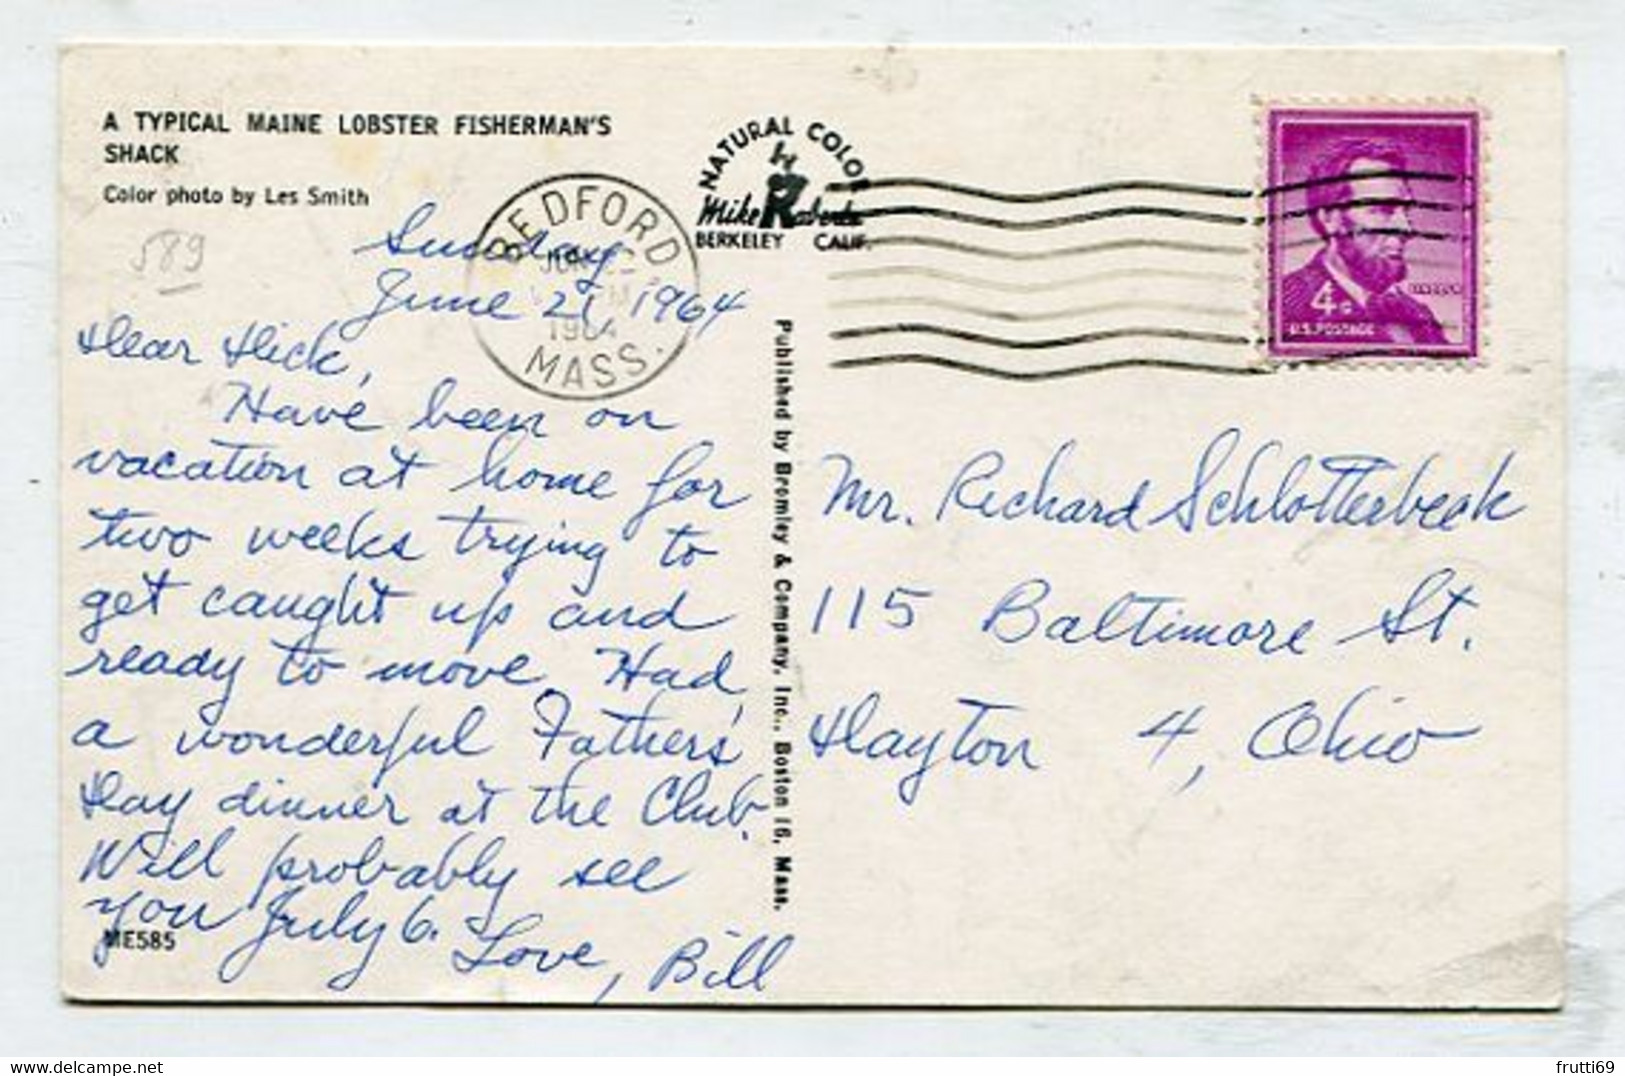 A TYPICAL MAINE LOBSTER FISHERMAN'S
SHACK
Color photo by Les Smith
589
NATURAL COLOR
by
Mike Roberts
BERKELEY CALIF.
BEDFORD
JUN
1964
MASS.
4¢
LINCOLN
U.S. POSTAGE
Sunday
June 21, 1964
Dear Dick,
Have been on
vacation at home for
two weeks trying to
get caught up and
ready to move. Had
a wonderful Fathers'
Day dinner at the Club.
Will probably see
you July 6.
Love, Bill
ME585
Published by Bromley & Company, Inc., Boston 16, Mass.
Mr. Richard Schlotterbeck
115 Baltimore St.
Dayton 4, Ohio
frutti69